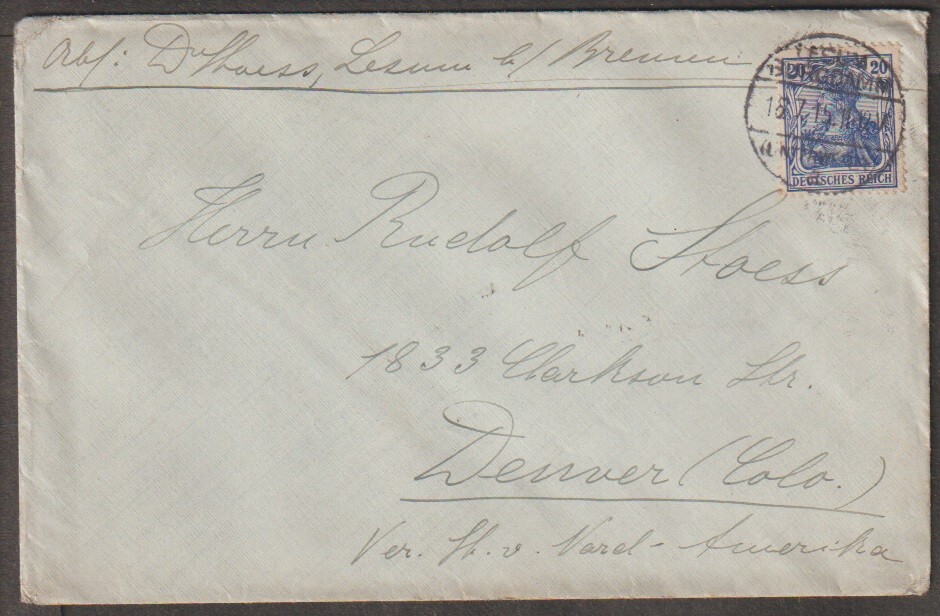 Abs: Dr Stoess, Lesum b/ Bremen
20 20
DEUTSCHES REICH
LESUM
18.7.15
Herrn Rudolf Stoess
1833 Clarkson Str.
Denver (Colo.)
Ver. St. v. Nord-Amerika